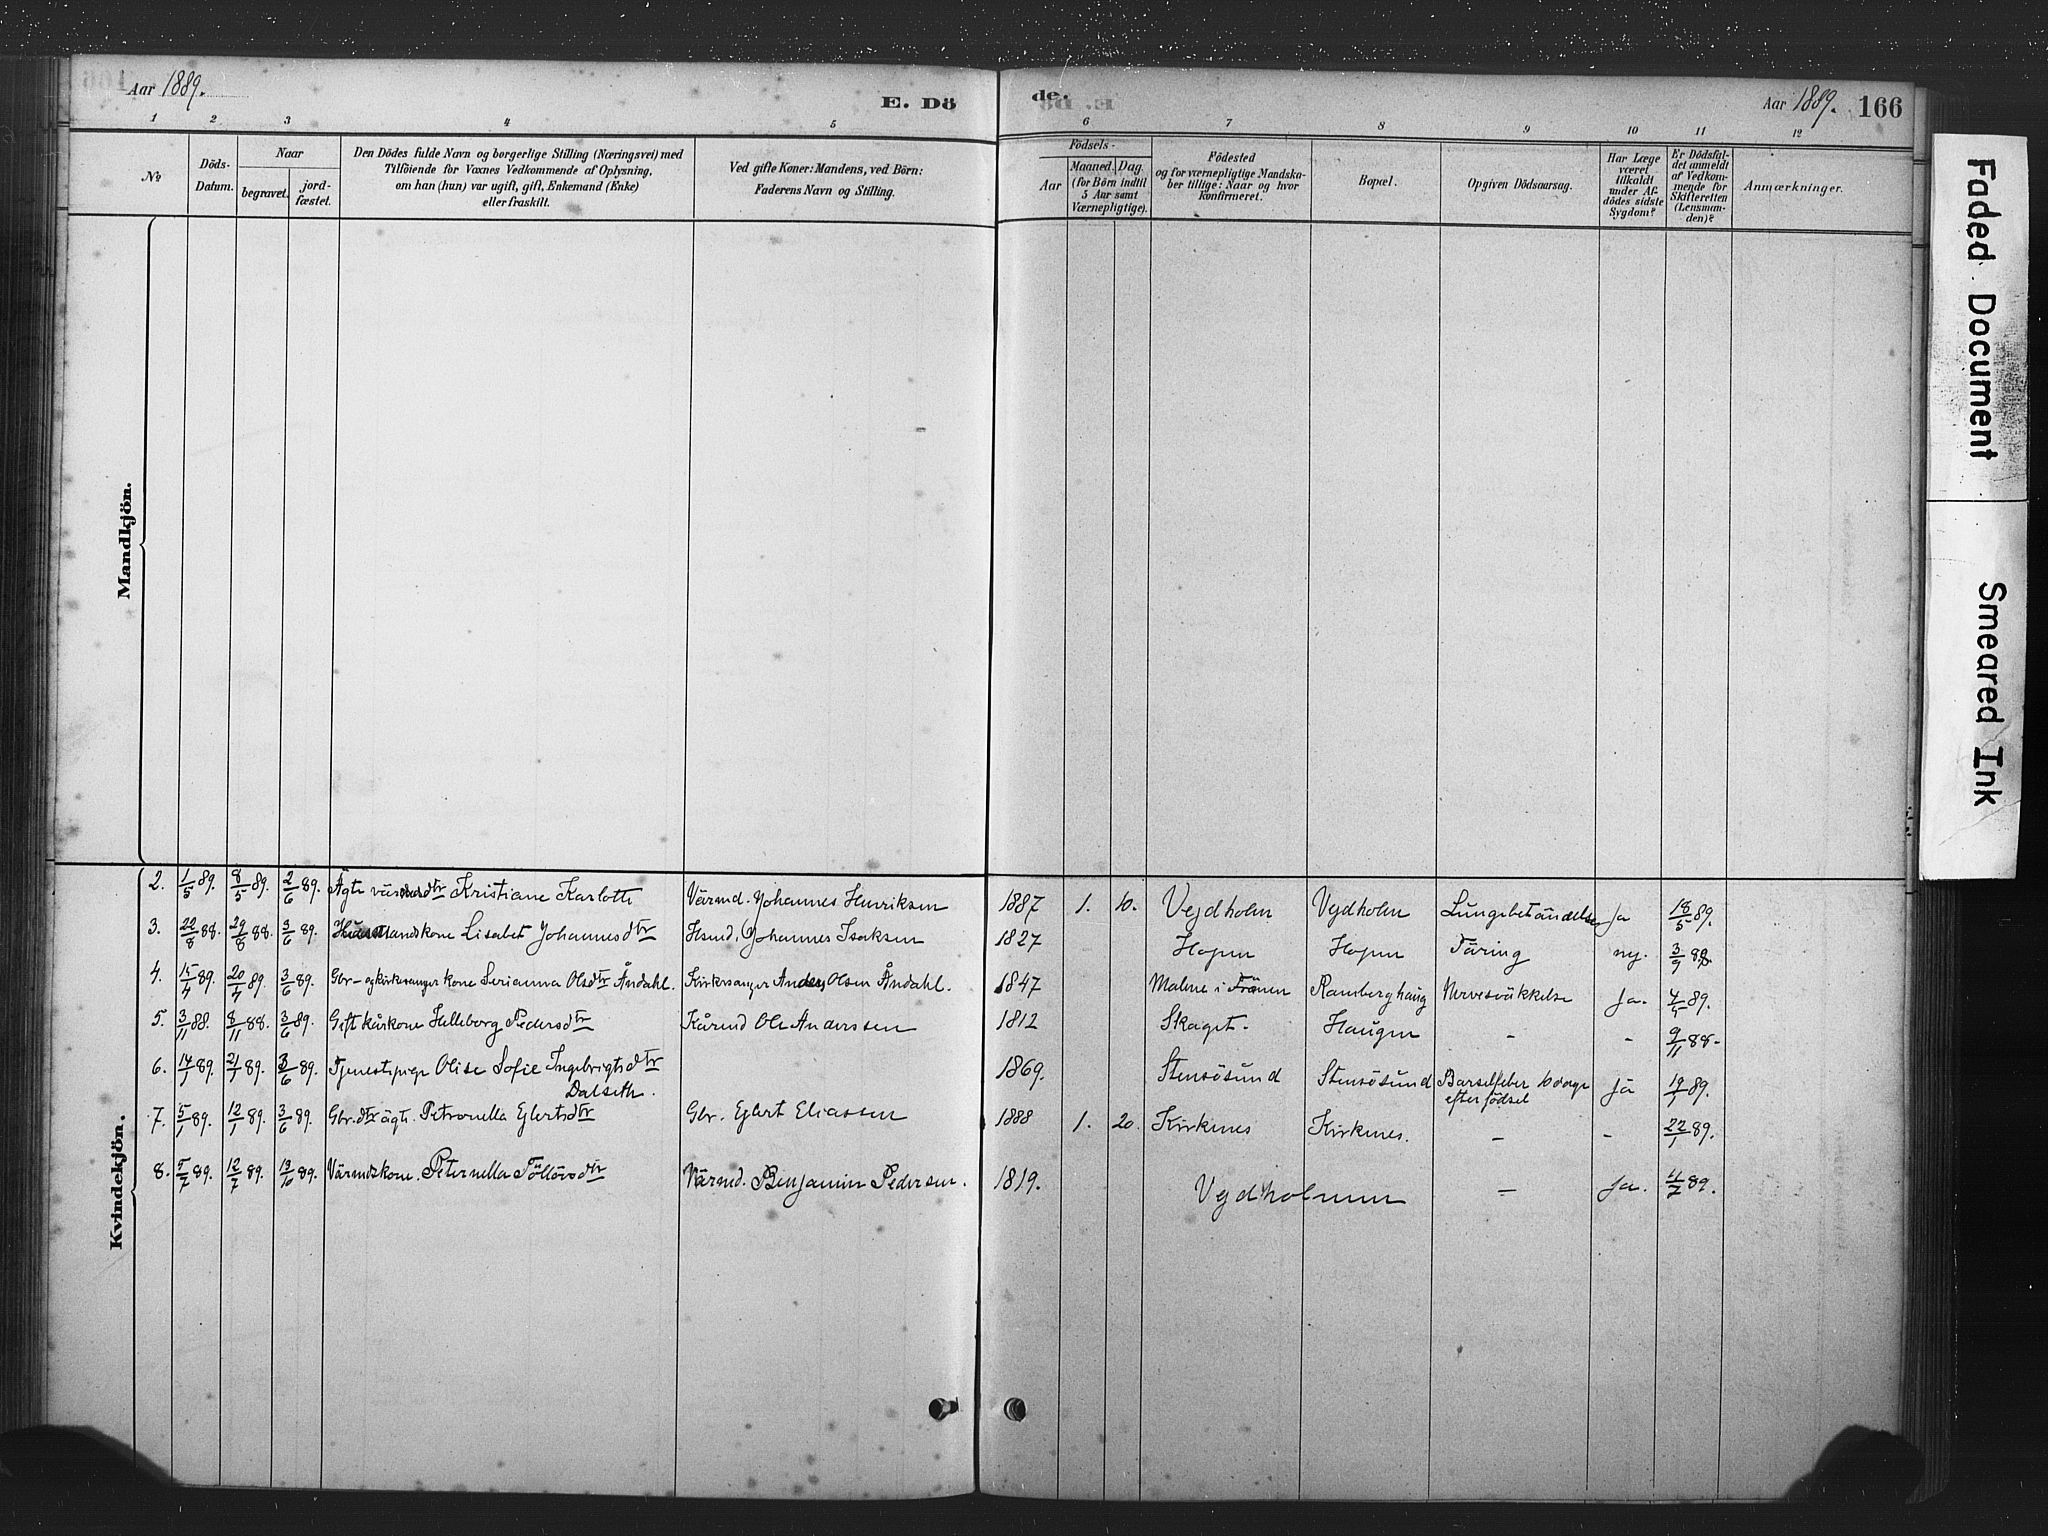 Aar 1889.
E. Dö
de.
Aar 1889. 166
1 2 3 4 5 6 7 8 9 10 11 12
No
Döds-
Datum.
Naar
begravet.
jord-
fæstet.
Den Dödes fulde Navn og borgerlige Stilling (Næringsvei) med
Tilföiende for Voxnes Vedkommende af Oplysning,
om han (hun) var ugift, gift, Enkemand (Enke)
eller fraskilt.
Ved gifte Koner: Mandens, ved Börn:
Faderens Navn og Stilling.
Födsels-
Aar
Maaned. Dag.
(for Börn indtil
5 Aar samt
Værnepligtige).
Födested
og for værnepligtige Mandska-
ber tillige: Naar og hvor
konfirmeret.
Bopæl.
Opgiven Dödsaarsag.
Har Læge
været
tilkaldt
under Af-
dödes sidste
Sygdom?
Er Dödsfal-
det anmeldt
af Vedkom-
mende for
Skifteretten
(Lensman-
den)?
Anmærkninger.
Mandkjön.
Kvindekjön.
2. 1/5 89. 8/5 89. 2/6 89. Ägte dtr Kristiane Karlotte Värmd. Johannes Henriksen 1887 1. 10. Vejdholm Vejdholm Lungebetändelse Ja 18/5 89.
3. 22/8 88. 29/8 88. 3/6 89. Husmandskone Lisabet Johannesdtr Hsmd. Johannes Isaksen 1827 Hopen Hopen Täring nej. 3/9 88.
4. 15/4 89. 20/4 89. 3/6 89. Gbr- og kirkesanger kone Serianna Olsdtr Åndahl Kirkesanger Anders Olsen Åndahl. 1847 Malme i Fränen Ramberghaug Nervesväkkelse Ja. 89.
5. 3/11 88. 8/11 88. 3/6 89. Gift kårkone Helleborg Pedersdtr Kårmd Ole Anderssen 1812 Skaget. Haugen - - 9/11 88.
6. 14/1 89. 21/1 89. 3/6 89. Tjenestepige Olise Sofie Ingebrigtsdtr 1869. Stensösund Stensösund Barselfeber 10 dage Ja 19/1 89.
Dalseth. efter födsel
7. 5/1 89. 12/1 89. 3/6 89. Gbr. dtr ägte. Petronella Ejlertsdtr Gbr. Ejlert Eliassen 1888 1. 20. Kirknes Kirknes. - - 22/1 89.
8. 5/7 89. 12/7 89. 13/10 89. Värmdskone. Peternella Tölløvsdtr Värmd. Benjamin Pedersen. 1819. Vejdholmen - Ja. 11/7 89.
Faded Document
Smeared Ink